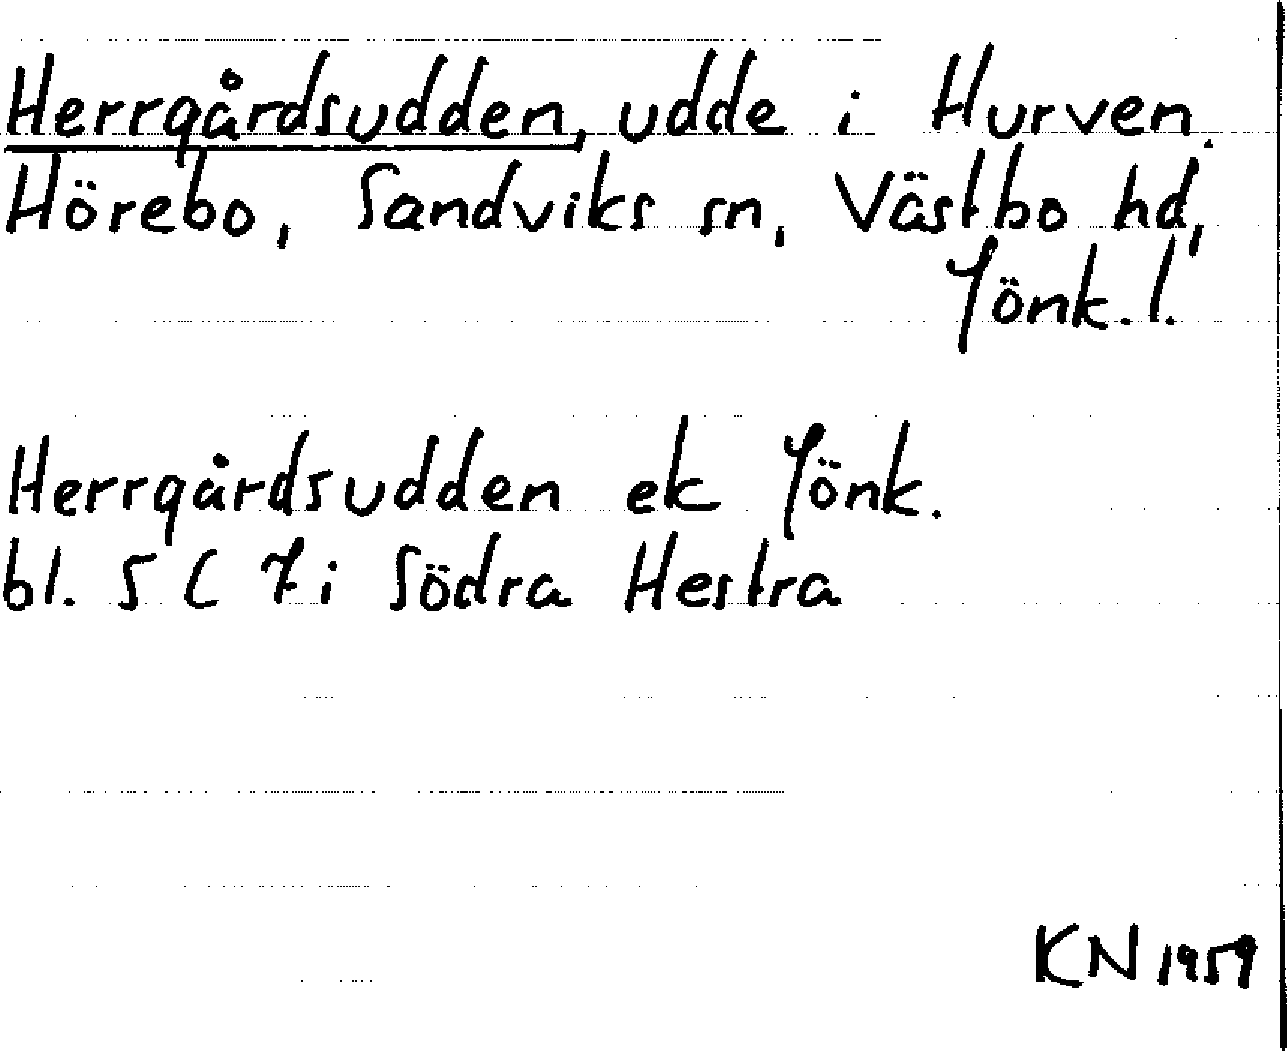 Herrgårdsudden, udde i Hurven.
Hörebo, Sandviks sn, Västbo hd,
Jönk. l.
Herrgårdsudden ek Jönk.
bl. 5 C 7 i Södra Hestra
KN 1959